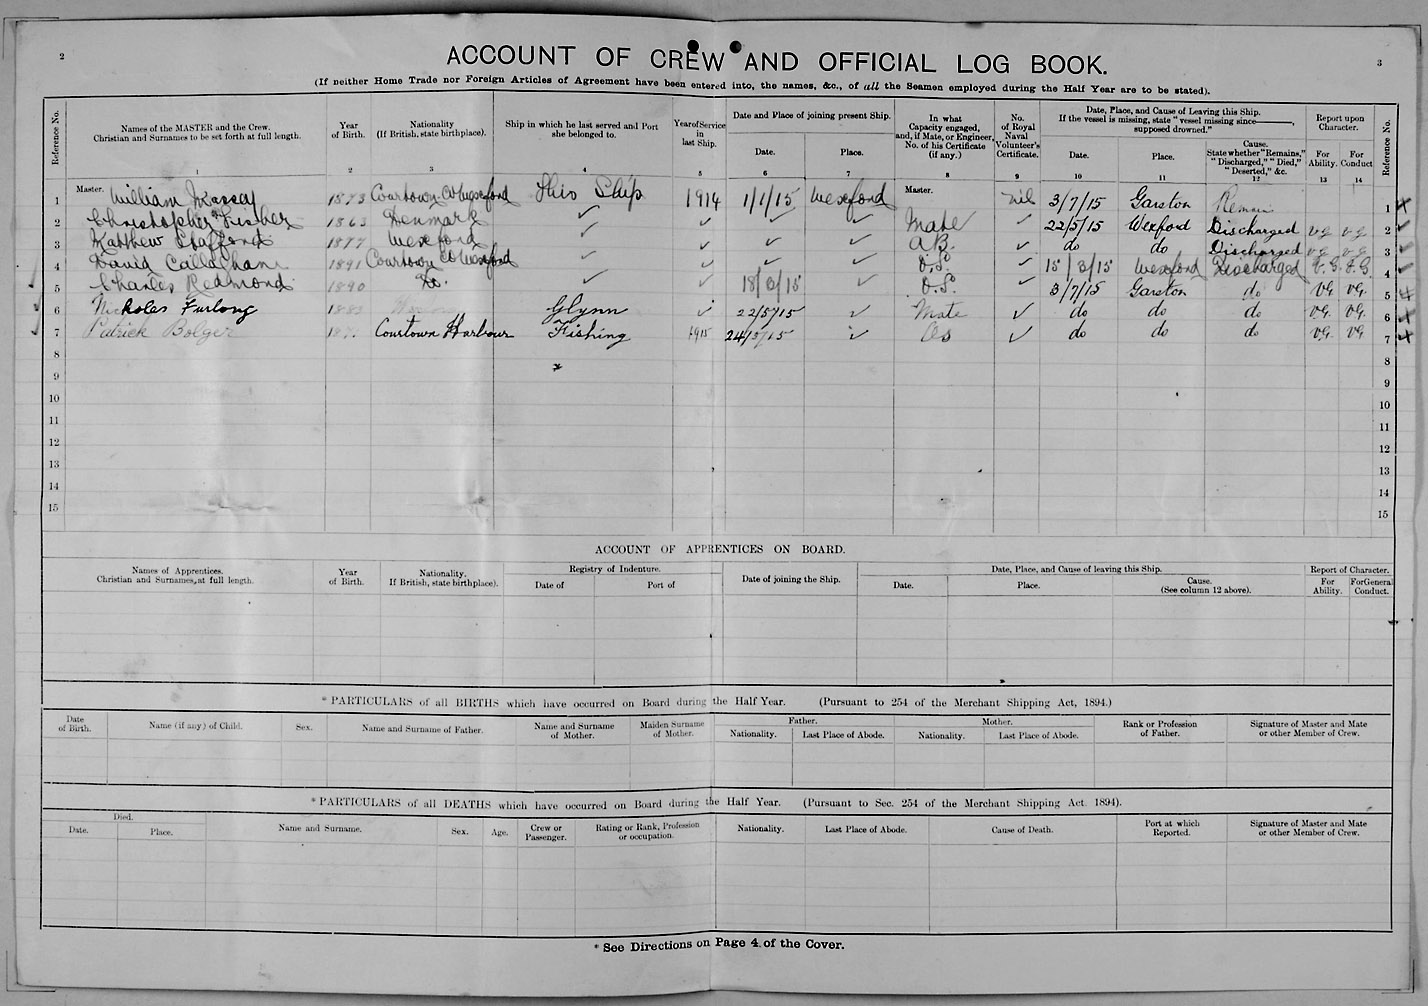 2
ACCOUNT OF CREW AND OFFICIAL LOG BOOK.
3
(If neither Home Trade nor Foreign Articles of Agreement have been entered into, the names, &c., of all the Seamen employed during the Half Year are to be stated).
Reference No.
Names of the MASTER and the Crew.
Christian and Surnames to be set forth at full length.
1
Year
of Birth.
2
Nationality
(If British, state birthplace).
3
Ship in which he last served and Port
she belonged to.
4
Year of Service
in
last Ship.
5
Date and Place of joining present Ship.
Date.
6
Place.
7
In what
Capacity engaged,
and, if Mate, or Engineer,
No. of his Certificate
(if any.)
8
No.
of Royal
Naval
Volunteer's
Certificate.
9
Date, Place, and Cause of Leaving this Ship.
If the vessel is missing, state "vessel missing since ———,
supposed drowned."
Date.
10
Place.
11
Cause.
State whether "Remains,"
"Discharged," "Died,"
"Deserted," &c.
12
Report upon
Character.
For
Ability.
13
For
Conduct
14
Reference No.
1 Master. William 1873 Courtown Co Wexford This Ship 1914 1/1/15 Wexford Master. nil 3/7/15 Garston Remain 1
2 Christopher Fischer 1863 Denmark ✓ ✓ ✓ ✓ Mate ✓ 22/5/15 Wexford Discharged v.g v.g 2
3 Matthew Stafford 1877 Wexford ✓ ✓ ✓ ✓ A.B. ✓ do do Discharged v.g v.g 3
4 David Callaghan 1891 Courtown Co Wexford ✓ ✓ ✓ ✓ O.S. ✓ 15/3/15 Wexford Discharged V.G. V.G 4
5 Charles Redmond 1890 Do. ✓ ✓ 18/3/15 ✓ O.S. ✓ 3/7/15 Garston do VG. VG. 5
6 Nicholas Furlong 1883 Glynn ✓ 22/5/15 ✓ Mate ✓ do do do VG. VG. 6
7 Patrick Bolger Courtown Harbour Fishing 1915 24/3/15 ✓ Os ✓ do do do VG. VG 7
8 8
9 9
10 10
11 11
12 12
13 13
14 14
15 15
ACCOUNT OF APPRENTICES ON BOARD.
Names of Apprentices.
Christian and Surnames, at full length.
Year
of Birth.
Nationality.
If British, state birthplace).
Registry of Indenture.
Date of
Port of
Date of joining the Ship.
Date, Place, and Cause of leaving this Ship.
Date.
Place.
Cause.
(See column 12 above).
Report of Character.
For
Ability.
For General
Conduct.
* PARTICULARS of all BIRTHS which have occurred on Board during the Half Year. (Pursuant to 254 of the Merchant Shipping Act, 1894.)
Date
of Birth.
Name (if any) of Child.
Sex.
Name and Surname of Father.
Name and Surname
of Mother.
Maiden Surname
of Mother.
Father.
Nationality.
Last Place of Abode.
Mother.
Nationality.
Last Place of Abode.
Rank or Profession
of Father.
Signature of Master and Mate
or other Member of Crew.
* PARTICULARS of all DEATHS which have occurred on Board during the Half Year. (Pursuant to Sec. 254 of the Merchant Shipping Act. 1894).
Died.
Date.
Place.
Name and Surname.
Sex.
Age.
Crew or
Passenger.
Rating or Rank, Profession
or occupation.
Nationality.
Last Place of Abode.
Cause of Death.
Port at which
Reported.
Signature of Master and Mate
or other Member of Crew.
* See Directions on Page 4 of the Cover.